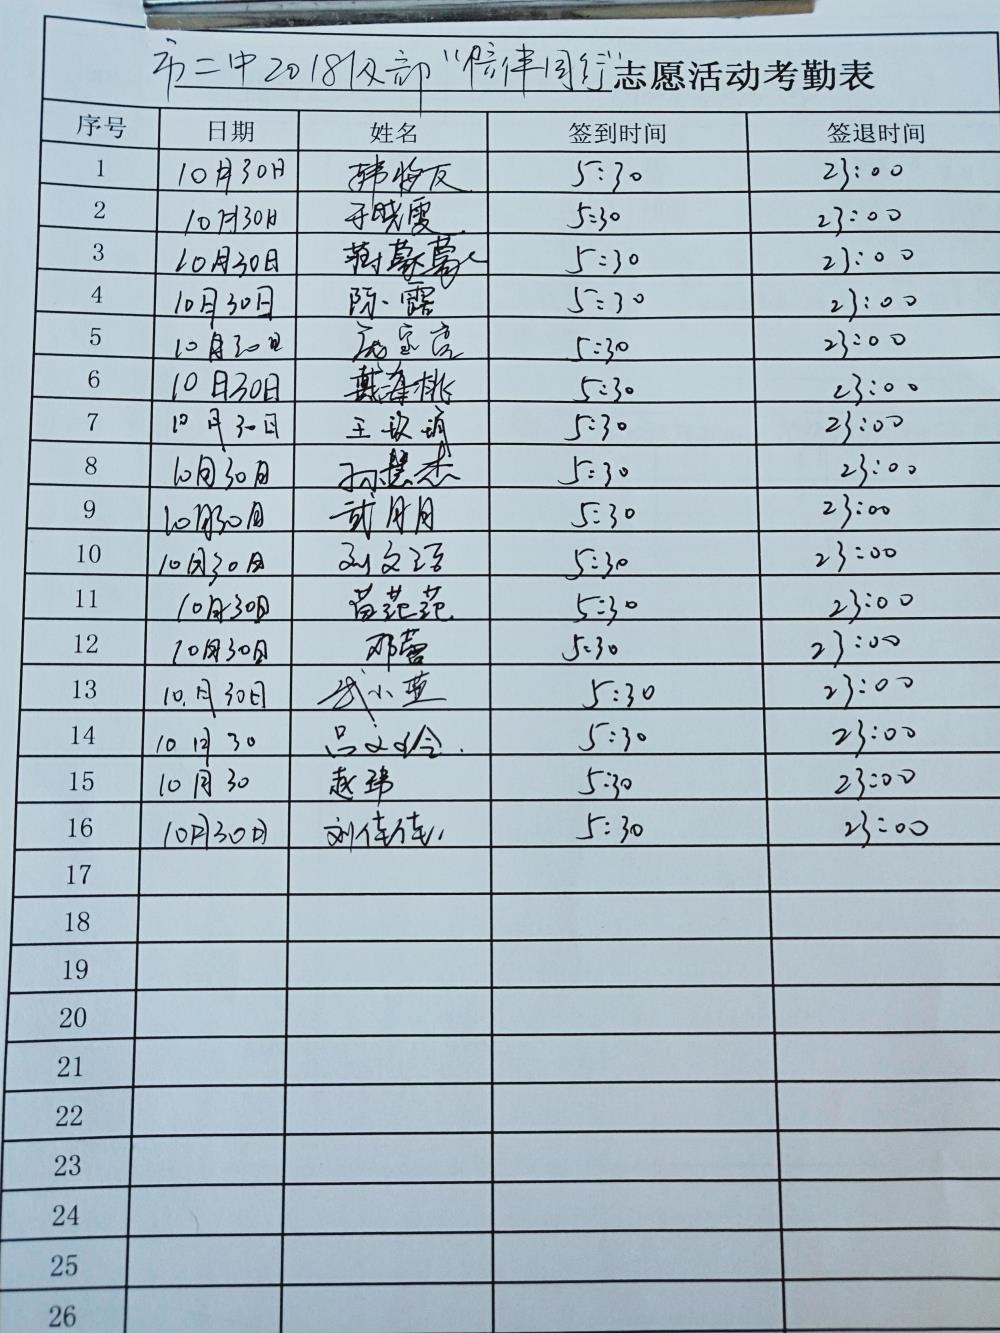 市二中2018级部“陪伴同行”志愿活动考勤表
序号 日期 姓名 签到时间 签退时间
1 10月30日 韩梅友 5:30 23:00
2 10月30日 于晓霞 5:30 23:00
3 10月30日 5:30 23:00
4 10月30日 陈露 5:30 23:00
5 10月30日 5:30 23:00
6 10月30日 戴海桃 5:30 23:00
7 10月30日 王 5:30 23:00
8 10月30日 孙慧杰 5:30 23:00
9 10月30日 武月月 5:30 23:00
10 10月30日 刘文 5:30 23:00
11 10月30日 苗范范 5:30 23:00
12 10月30日 邓蕾 5:30 23:00
13 10月30日 武小燕 5:30 23:00
14 10月30 吕 5:30 23:00
15 10月30 赵玮 5:30 23:00
16 10月30日 刘佳佳 5:30 23:00
17
18
19
20
21
22
23
24
25
26